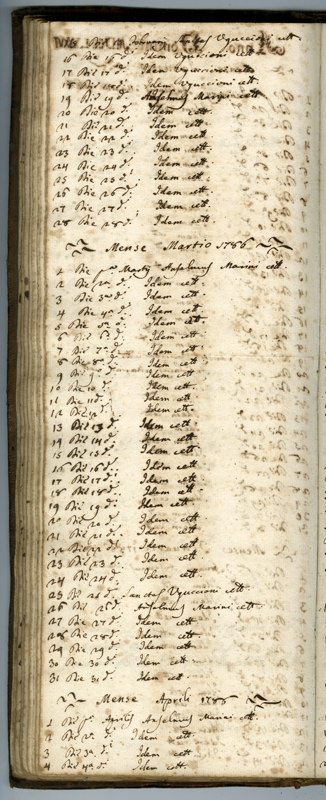 Johannes Sanctes Vguccioni cett.
16 Die 16 d.º Idem Vguccioni
17 Die 17 d.º Idem Vguccioni cett.
18 Die 18 d.º Idem Vguccioni cett.
19 Die 19 d.º Anselmus Marini cett.
20 Die 20 d.º Idem cett.
21 Die 21 d.º Idem cett.
22 Die 22 d.º Idem cett.
23 Die 23 d.º Idem cett.
24 Die 24 d.º Idem cett.
25 Die 25 d.º Idem cett.
26 Die 26 d.º Idem cett.
27 Die 27 d.º Idem cett.
28 Die 28 d.º Idem cett.
Mense Martio 1786
1 Die p.ma Martij Anselmus Marini cett.
2 Die 2.da d.º Idem cett.
3 Die 3.ia d.º Idem cett.
4 Die 4.a d.º Idem cett.
5 Die 5.a d.º Idem cett.
6 Die 6.a d.º Idem cett.
7 Die 7.a d.º Idem cett.
8 Die 8.a d.º Idem cett.
9 Die 9.a d.º Idem cett.
10 Die 10 d.º Idem cett.
11 Die 11 d.º Idem cett.
12 Die 12 d.º Idem cett.
13 Die 13 d.º Idem cett.
14 Die 14 d.º Idem cett.
15 Die 15 d.º Idem cett.
16 Die 16 d.º Idem cett.
17 Die 17 d.º Idem cett.
18 Die 18 d.º Idem cett.
19 Die 19 d.º Idem cett.
20 Die 20 d.º Idem cett.
21 Die 21 d.º Idem cett.
22 Die 22 d.º Idem cett.
23 Die 23 d.º Idem cett.
24 Die 24 d.º Idem cett.
25 Die 25 d.º Sanctes Vguccioni cett.
26 Die 26 d.º Anselmus Marini cett.
27 Die 27 d.º Idem cett.
28 Die 28 d.º Idem cett.
29 Die 29 d.º Idem cett.
30 Die 30 d.º Idem cett.
31 Die 31 d.º Idem cett.
Mense Aprili 1786
1 Die p.a Aprilis Anselmus Marini cett.
2 Die 2.a d.º Idem cett.
3 Die 3.a d.º Idem cett.
4 Die 4.a d.º Idem cett.